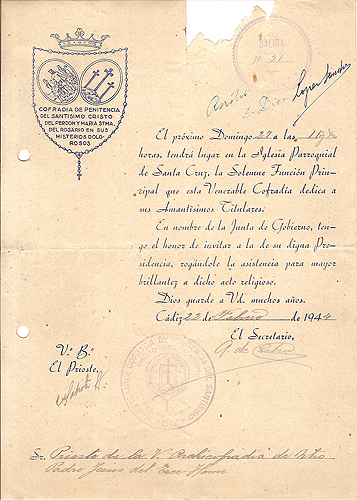 COFRADIA DE PENITENCIA
DEL SANTISIMO CRISTO
DEL PERDON Y MARIA STMA.
DEL ROSARIO EN SUS
MISTERIOS DOLO-
ROSOS
SALIDA
Nº 21
El próximo Domingo 22 a las 11½
horas, tendrá lugar en la Iglesia Parroquial
de Santa Cruz, la Solemne Función Prin-
cipal que esta Venerable Cofradía dedica a
sus Amantísimos Titulares.
En nombre de la Junta de Gobierno, ten-
go el honor de invitar a la de su digna Pre-
sidencia, rogándole la asistencia para mayor
brillantez a dicho acto religioso.
Dios guarde a Vd. muchos años.
Cádiz 22 de Febrero de 1944
El Secretario,
V.º B.º
El Prioste,
Sr. Prioste de la V. Archicofradía de Ntro
Padre Jesús del Ecce-Homo